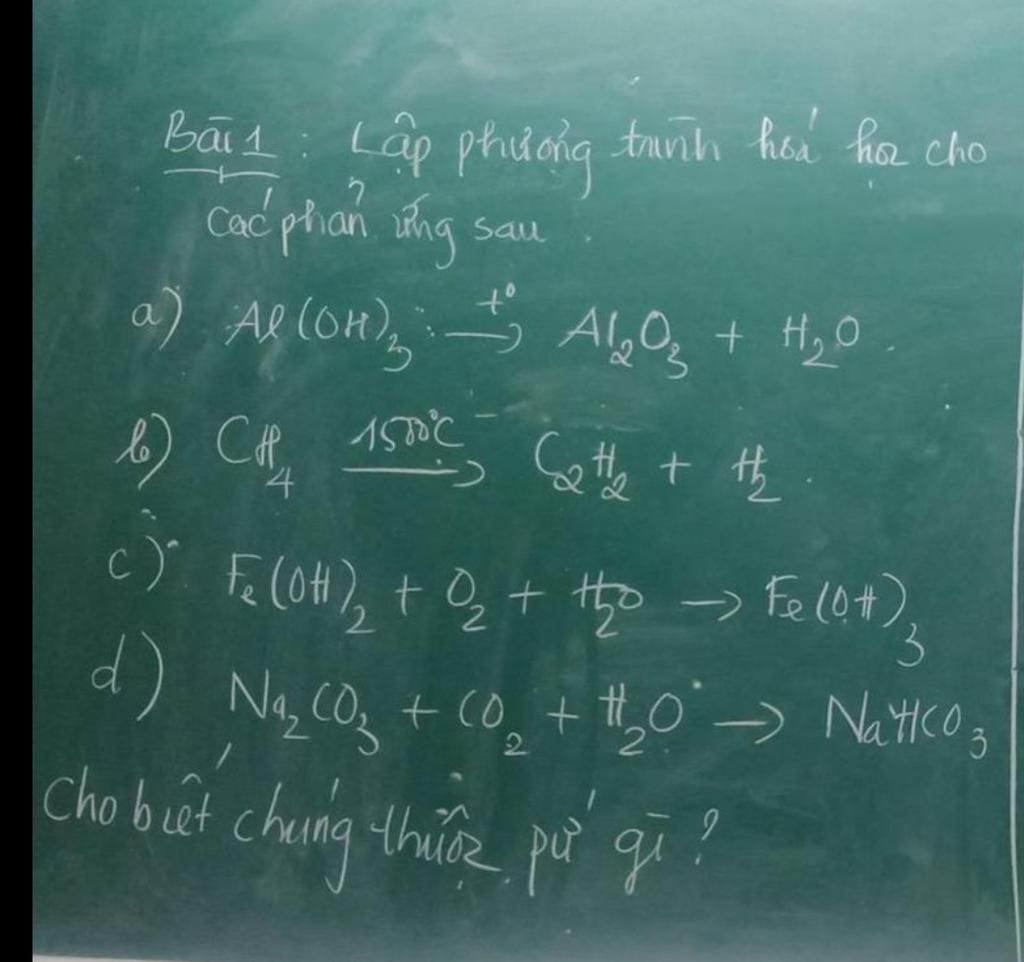 Bài 1 : Lập phương trình hoá học cho
các phản ứng sau .
a) Al(OH)₃ —t°→ Al₂O₃ + H₂O .
b) CH₄ —1500°C→ C₂H₂ + H₂ .
c) Fe(OH)₂ + O₂ + H₂O → Fe(OH)₃
d) Na₂CO₃ + CO₂ + H₂O → NaHCO₃
Cho biết chúng thuộc pứ gì ?